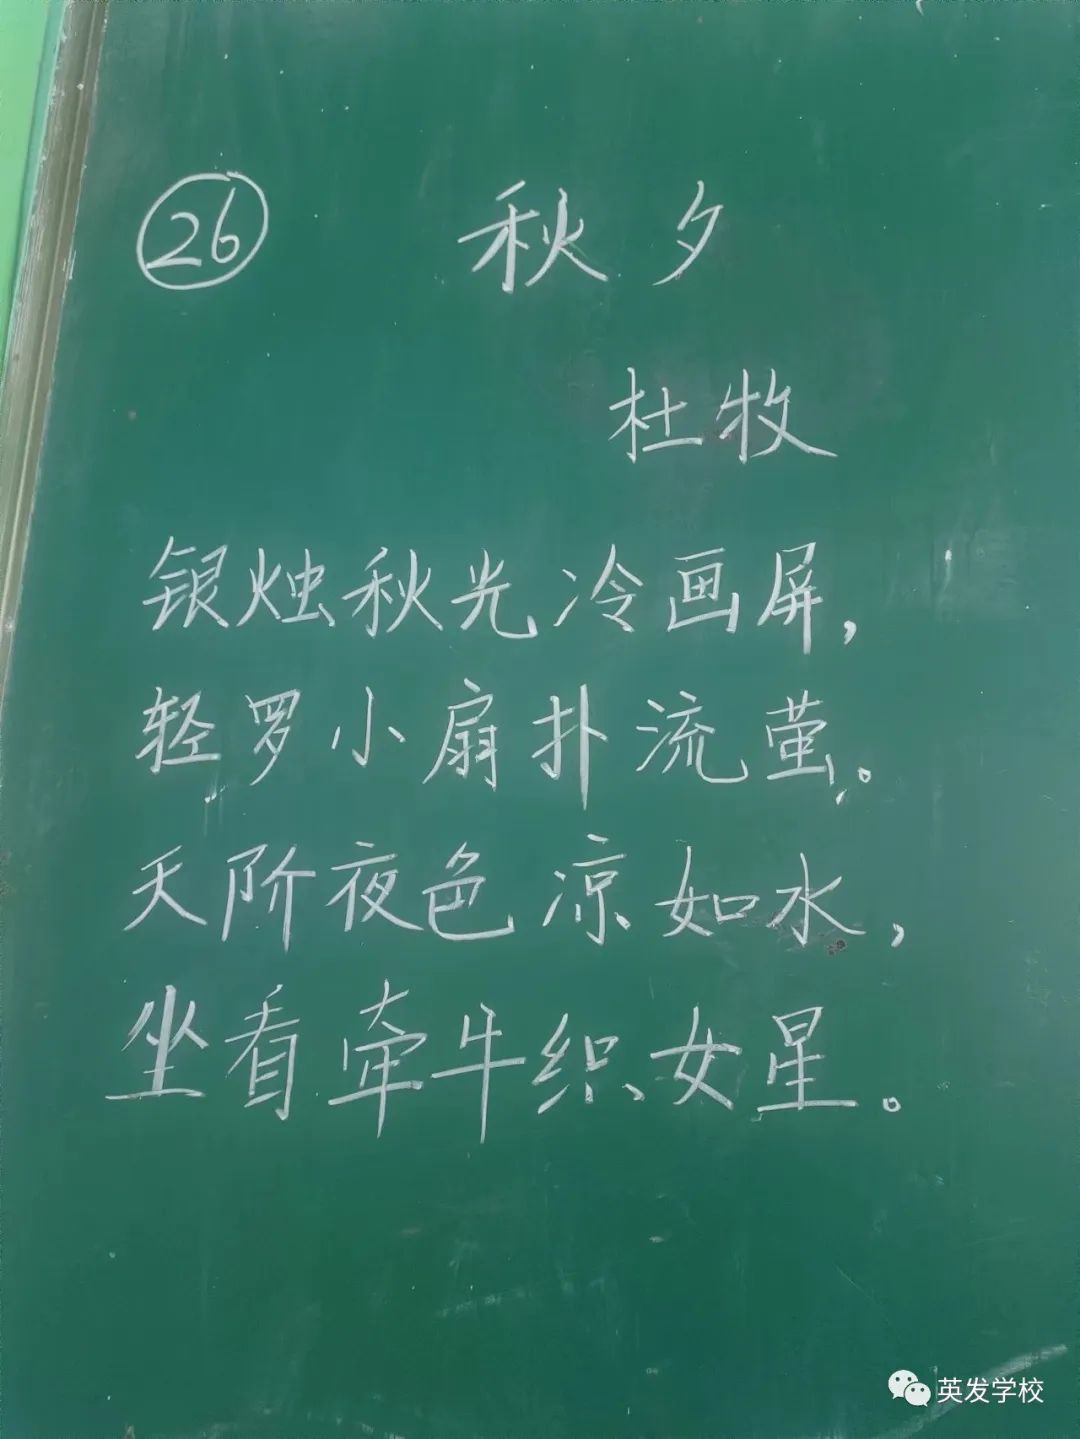 26 秋夕
杜牧
银烛秋光冷画屏，
轻罗小扇扑流萤。
天阶夜色凉如水，
坐看牵牛织女星。
英发学校